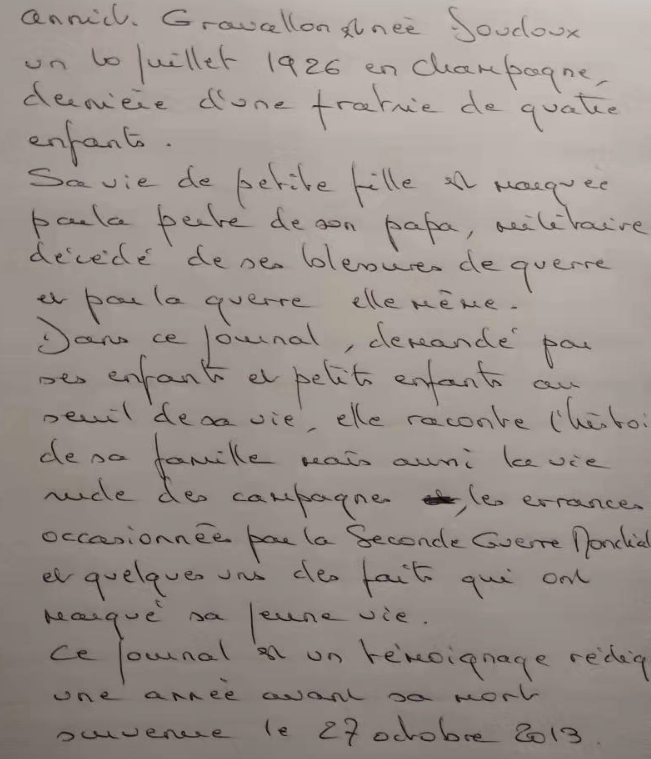 annick. Gravallon est née Joudoux
un 10 juillet 1926 en Champagne,
dernière d'une fratrie de quatre
enfants.
Sa vie de petite fille est marquée
par la perte de son papa, militaire
décédé de ses blessures de guerre
et par la guerre elle même.
Dans ce journal, demandé par
ses enfants et petits enfants au
seuil de sa vie, elle raconte l'histoi
de sa famille mais aussi la vie
rude des campagnes, les errances
occasionnées par la Seconde Guerre Mondial
et quelques uns des faits qui ont
marqué sa jeune vie.
Ce journal est un témoignage rédig
une année avant sa mort
survenue le 27 octobre 2013.